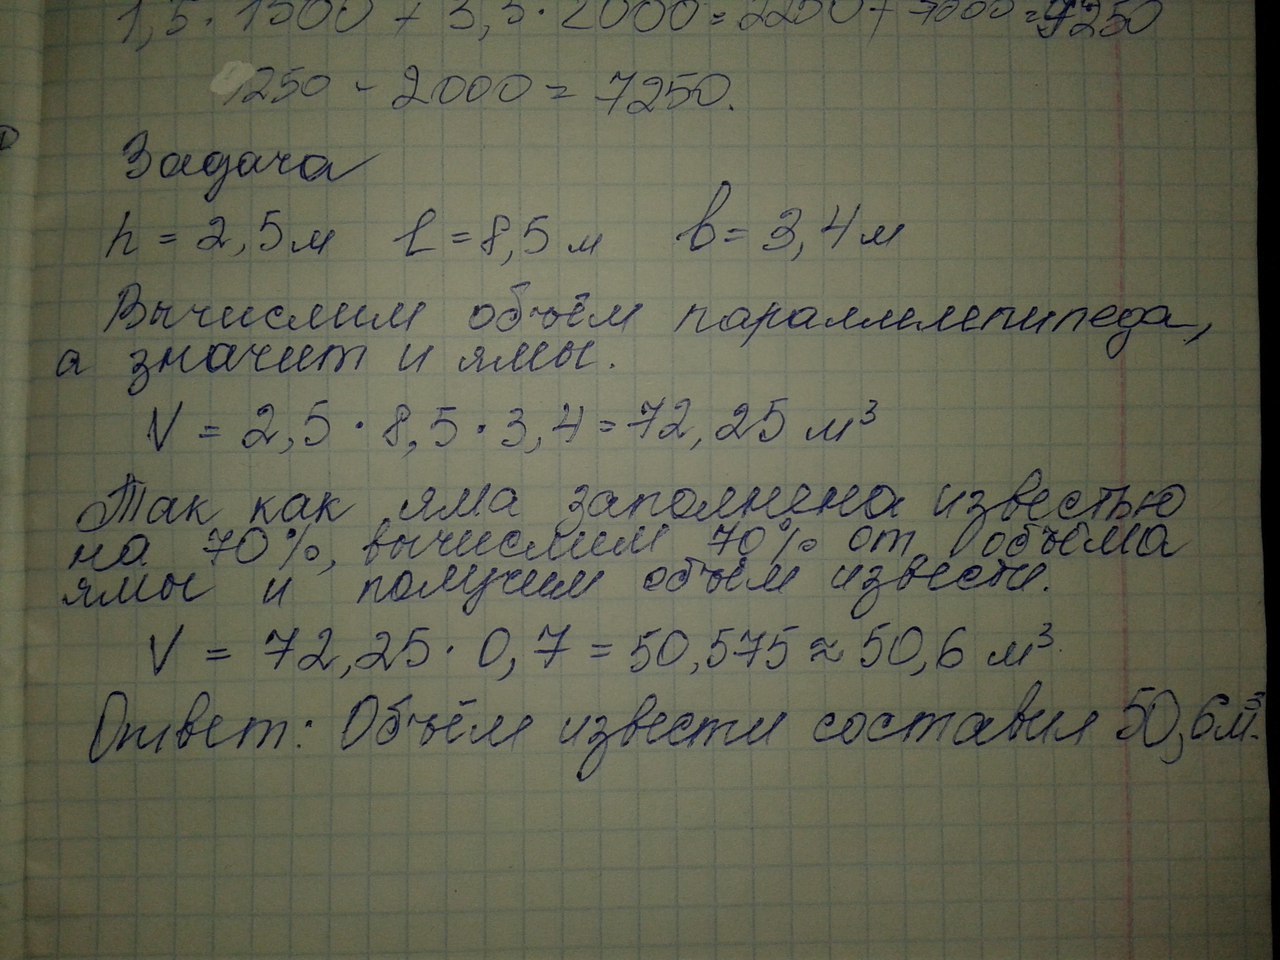 1,5 · 1500 + 3,5 · 2000 = 2250 + 7000 = 9250
9250 - 2000 = 7250.
Задача
h = 2,5 м l = 8,5 м b = 3,4 м
Вычислим объём параллелепипеда,
а значит и ямы.
V = 2,5 · 8,5 · 3,4 = 72,25 м³
Так как яма заполнена известью
на 70%, вычислим 70% от объёма
ямы и получим объём извести.
V = 72,25 · 0,7 = 50,575 ≈ 50,6 м³
Ответ: Объём извести составил 50,6м³.